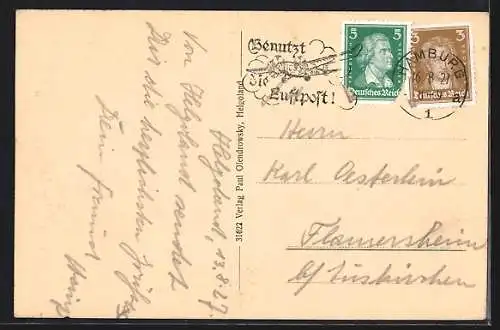 Helgoland, 13.8.27.
Von Helgoland sendet
Dir die herzlichsten Grüße
Dein Freund
Heinz
31622 Verlag Paul Olendrowsky, Helgoland
Benutzt
Die
Luftpost!
5 5
Deutsches Reich
3 3
Deutsches Reich
HAMBURG
8.27
1
Herrn
Karl Oesterlein
Flamersheim
b/Euskirchen